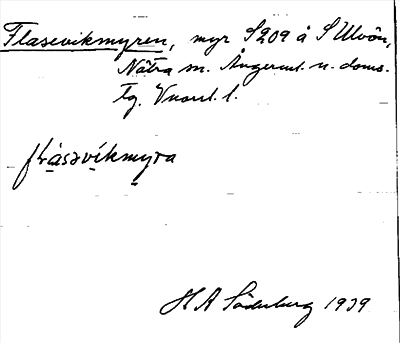 Flasevikmyren, myr S209 å S Ulvön,
Nätra sn. Ångerml. n. doms.
tg. Vnorrl. l.
flasəvikmyra
H A Söderberg 1939